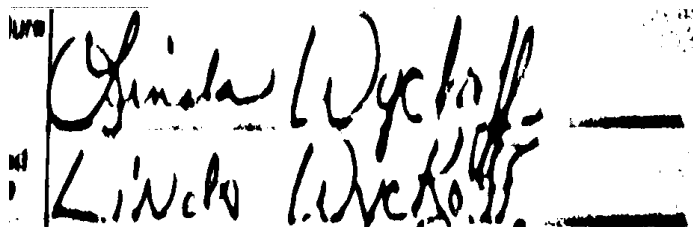 Linda Wyckoff
Linda Wyckoff